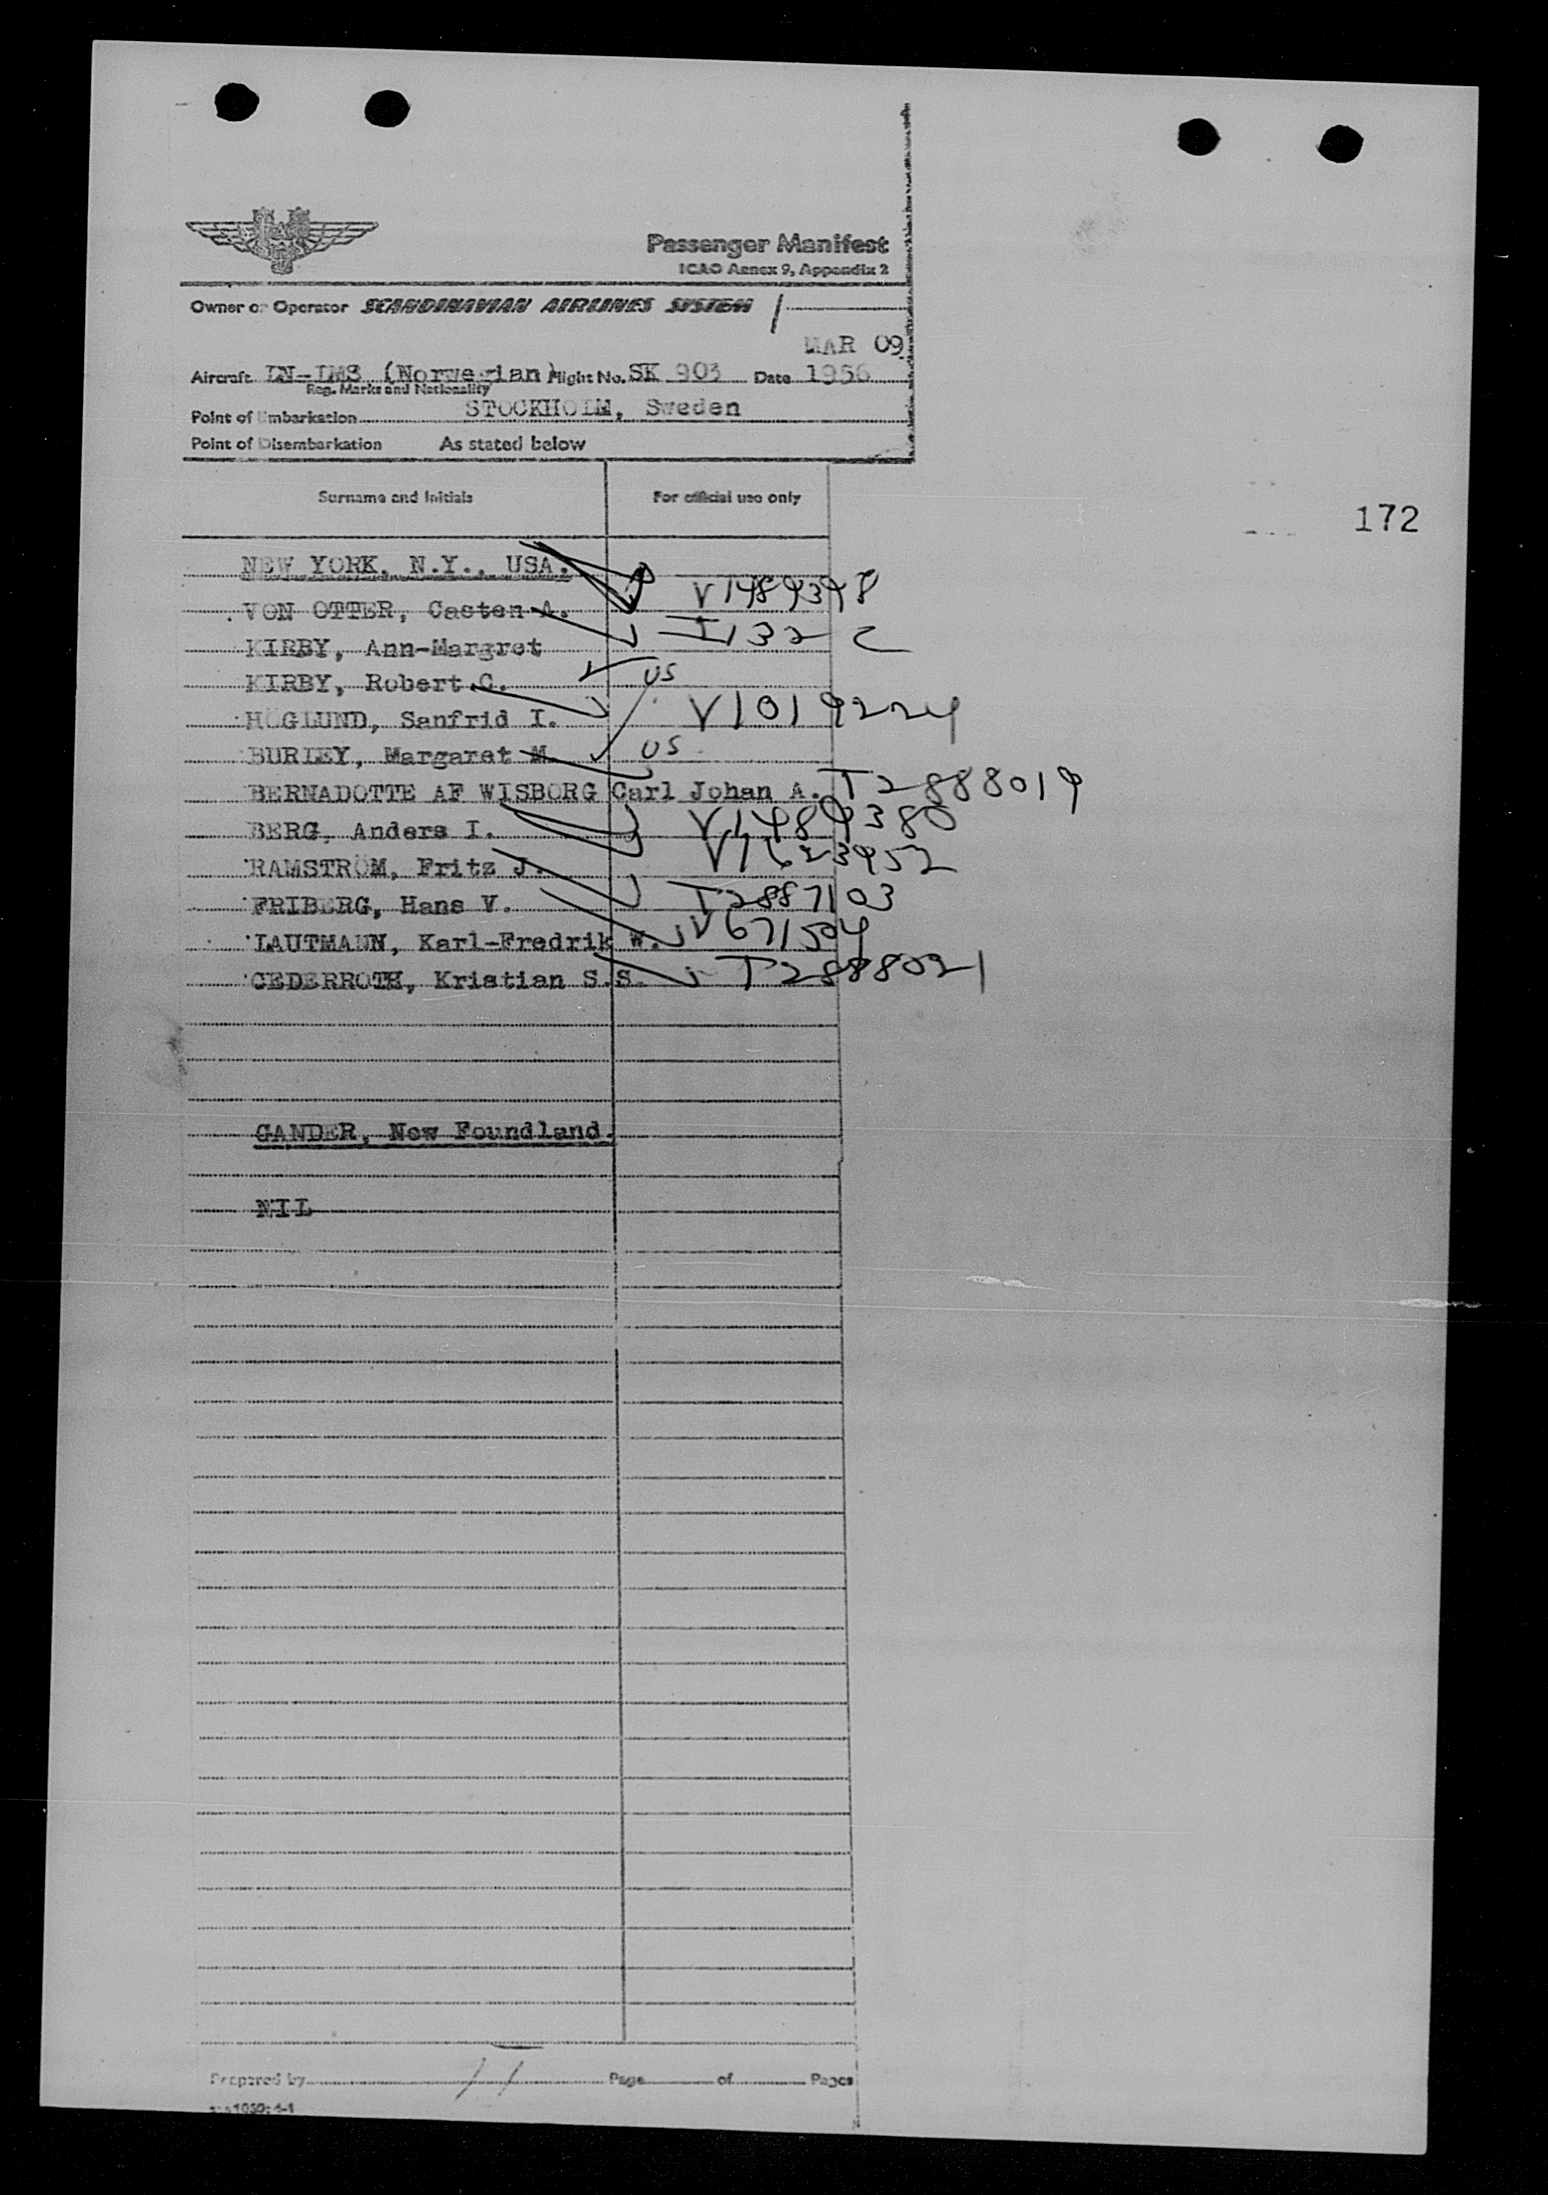 Passenger Manifest
ICAO Annex 9, Appendix 2
Owner or Operator SCANDINAVIAN AIRLINES SYSTEM
MAR 09
Aircraft LN-LMS (Norwegian) Flight No. SK 903 Date 1956
Reg. Marks and Nationality
Point of Embarkation STOCKHOLM, Sweden
Point of Disembarkation As stated below
Surname and Initials For official use only
172
NEW YORK, N.Y., USA.
VON OTTER, Casten A. V1489398
KIRBY, Ann-Margret I132 C
KIRBY, Robert C. US
HÖGLUND, Sanfrid I. V1019224
BURLEY, Margaret M. US
BERNADOTTE AF WISBORG Carl Johan A. T2888019
BERG, Anders I. V1489380
RAMSTRÖM, Fritz J. V1623952
FRIBERG, Hans V. T2887103
LAUTMANN, Karl-Fredrik W. V671504
CEDERROTH, Kristian S.S. T2888021
GANDER, New Foundland.
NIL
Prepared by 11 Page of Pages